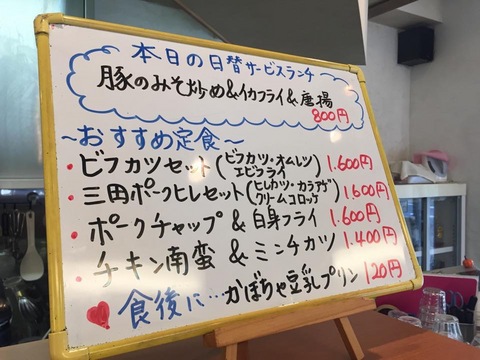 本日の日替サービスランチ
豚のみそ炒め&イカフライ&唐揚
800円
~おすすめ定食~
・ビフカツセット(ビフカツ・オムレツ エビフライ) 1.600円
・三田ポークヒレセット(ヒレカツ・カラアゲ クリームコロッケ) 1.600円
・ポークチャップ&白身フライ 1.600円
・チキン南蛮&ミンチカツ 1.400円
♥食後に…かぼちゃ豆乳プリン 120円